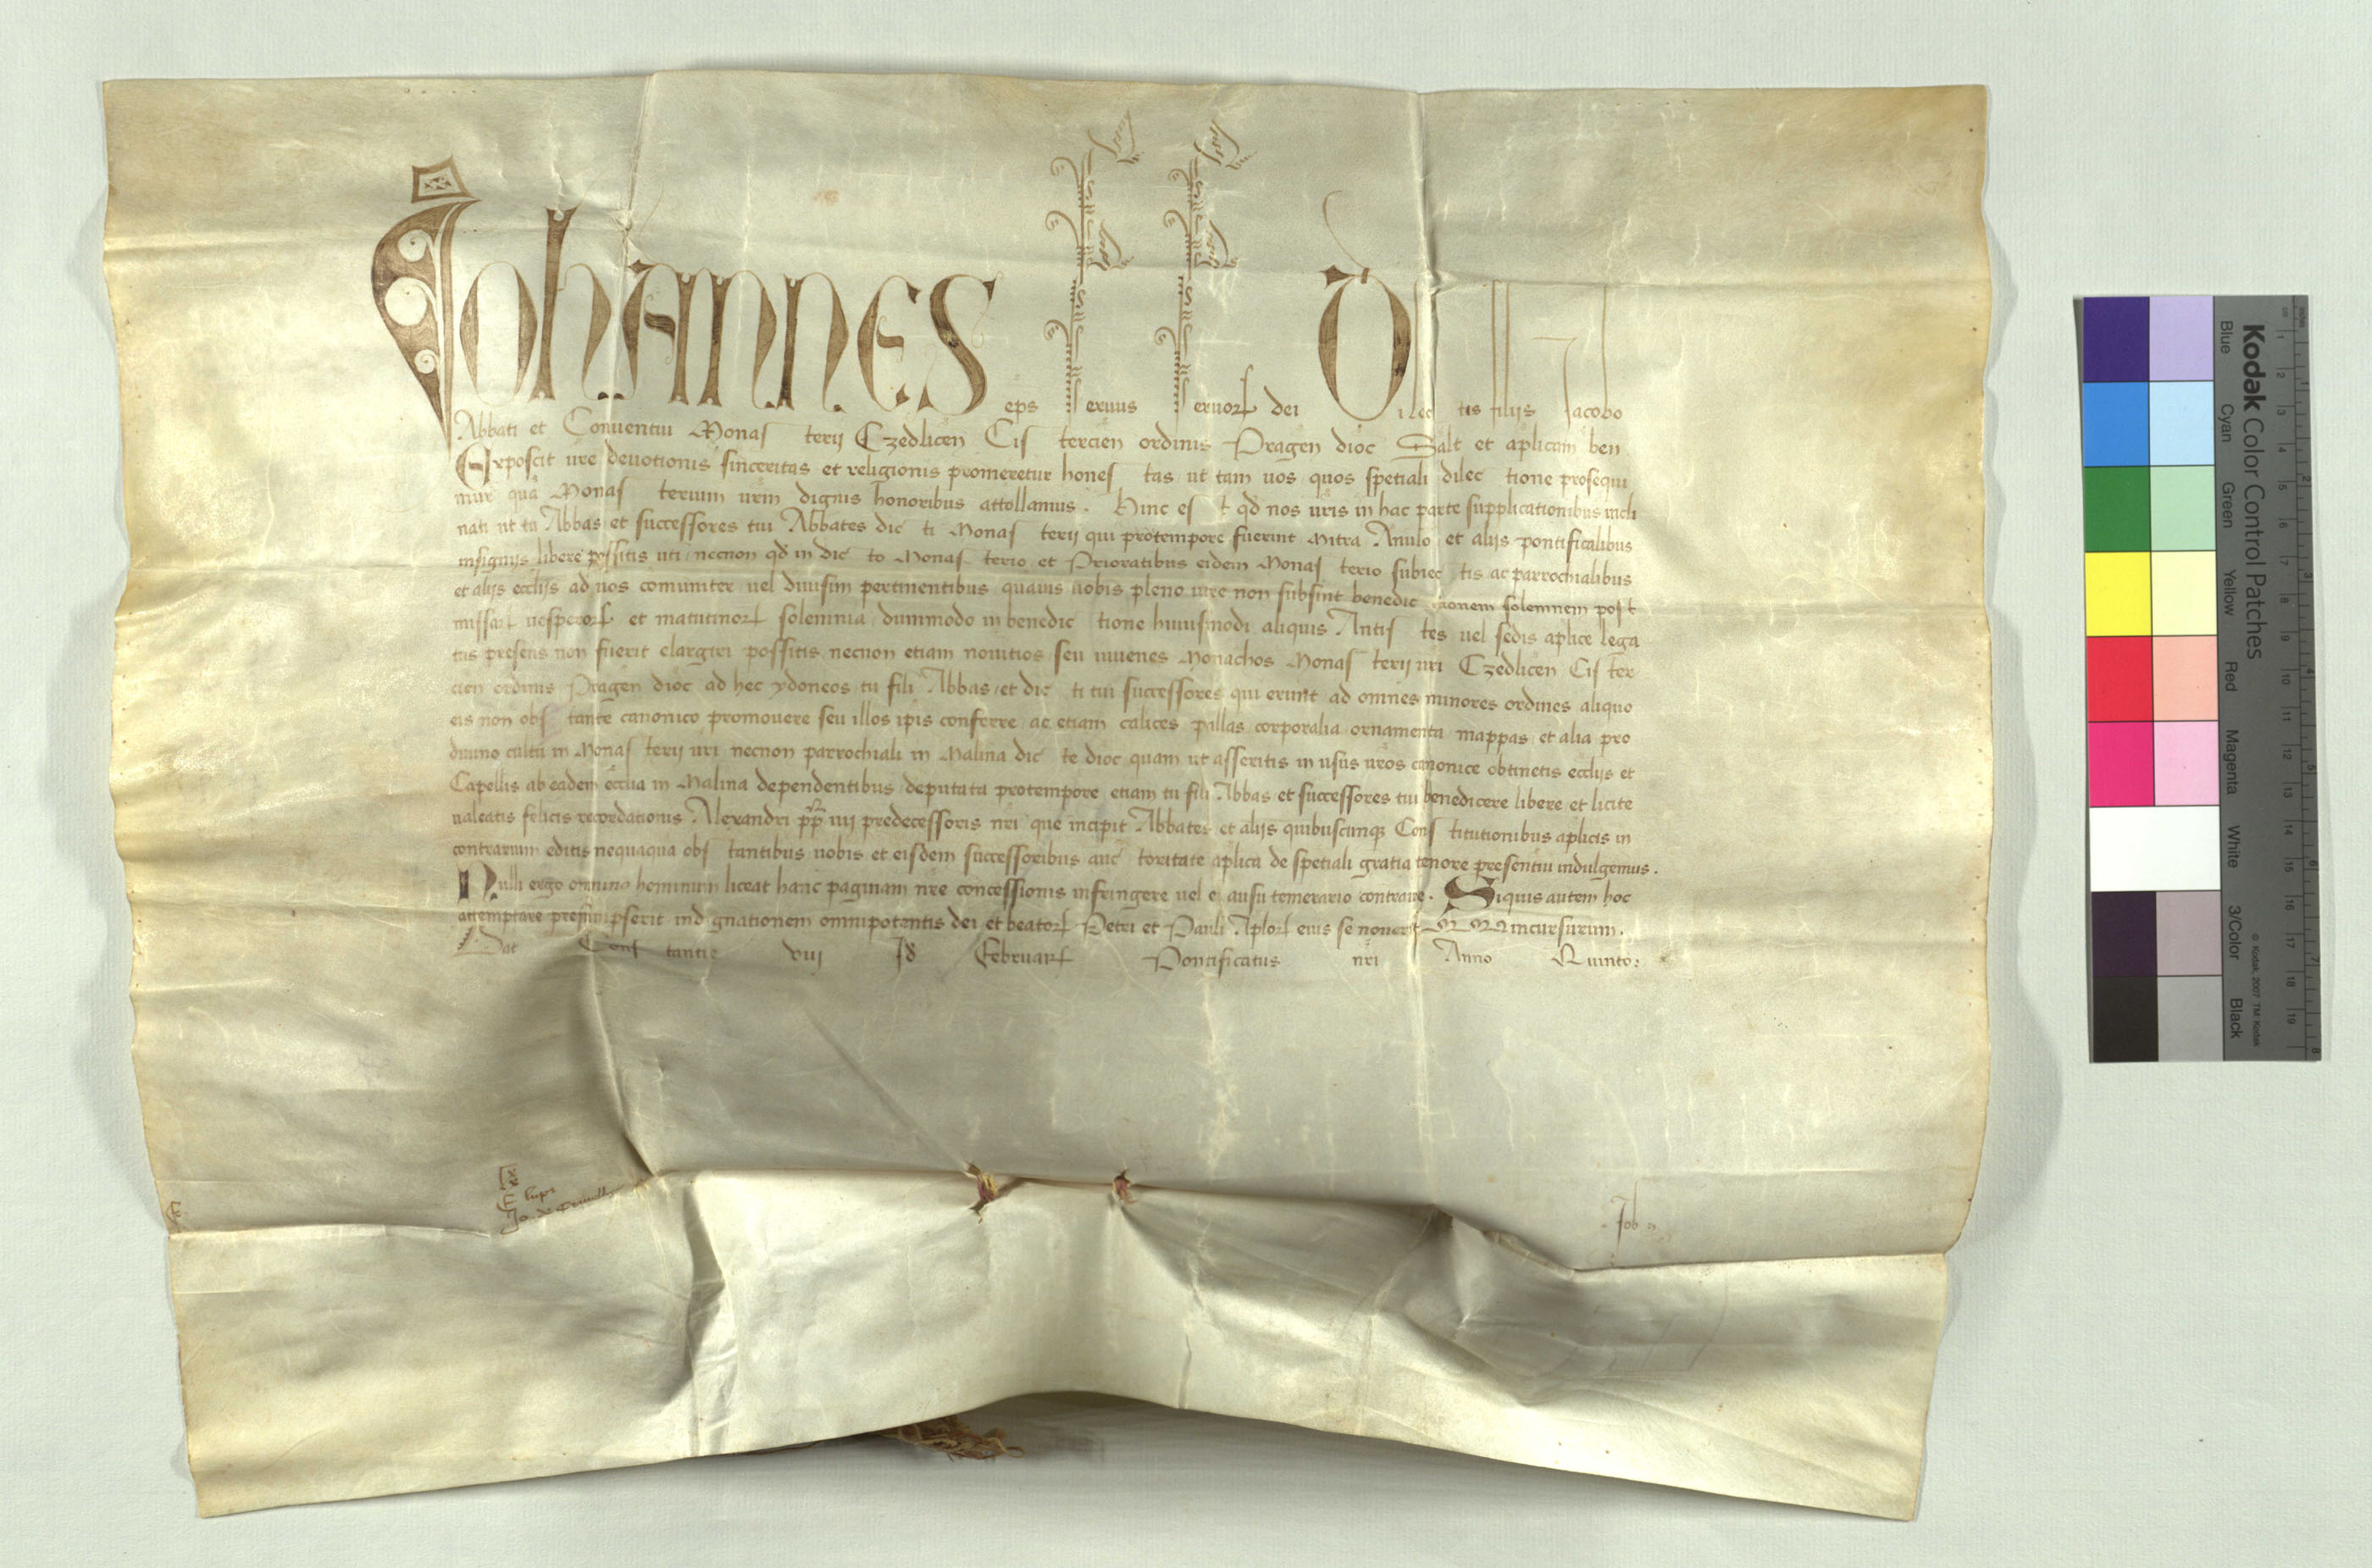 Johannes eps servus servor dei Dilectis filijs Jacobo
Abbati et Conuentui Monasterij Czedlicen Cistercien ordinis Pragen dioc Salt et aplicam ben
Exposcit vre deuotionis sinceritas et religionis promeretur honestas ut tam uos quos spetiali dilectione prosequi
mur quā Monasterium vrm dignis honoribus attollamus. Hinc est qd nos vris in hac parte supplicationibus incli
nati ut tu Abbas et successores tui Abbates dicti Monasterij qui protempore fuerint Mitra Anulo et alijs pontificalibus
insignijs libere possitis uti necnon qd in dicto Monasterio et Prioratibus eidem Monasterio subiectis ac parrochialibus
et alijs ecclijs ad uos comuniter uel diuisim pertinentibus quauis uobis pleno iure non subsint benedictionem solemnem post
missar vesperor et matutinor solemnia dummodo in benedictione huiusmodi aliquis Antistes uel sedis aplice lega
tus presens non fuerit elargiri possitis necnon etiam nouitios seu iuuenes Monachos Monasterij vri Czedlicen Cister
cien ordinis Pragen dioc ad hec ydoneos tu fili Abbas et dicti tui successores qui erunt ad omnes minores ordines aliquo
eis non obstante canonico promouere seu illos ipis conferre ac etiam calices pallas corporalia ornamenta mappas et alia pro
diuino cultu in Monasterij vri necnon parrochiali in Malina dicte dioc quam ut asseritis in usus vros canonice obtinetis ecclijs et
Capellis ab eadem ecclia in Malina dependentibus deputata protempore etiam tu fili Abbas et successores tui benedicere libere et licite
ualeatis felicis recordationis Alexandri pp iiij predecessoris nri que incipit Abbates et alijs quibuscunq Constitutionibus aplicis in
contrarium editis nequaqua obstantibus uobis et eisdem successoribus auctoritate aplica de spetiali gratia tenore presentiu indulgemus.
Nulli ergo omnino hominum liceat hanc paginam nre concessionis infringere uel ei ausu temerario contraire. Siquis autem hoc
attemptare presumpserit indignationem omnipotentis dei et beator Petri et Pauli Aplor eius se nouerit incursurum.
Dat Constantie viij Id Februar Pontificatus nri Anno Quinto:
lupi
Jo. de
Job
Kodak Color Control Patches
Blue Cyan Green Yellow Red Magenta White 3/Color Black
© Kodak, 2007 TM: Kodak
cm 1 2 3 4 5 6 7 8 9 10 11 12 13 14 15 16 17 18 19
inches 1 2 3 4 5 6 7 8